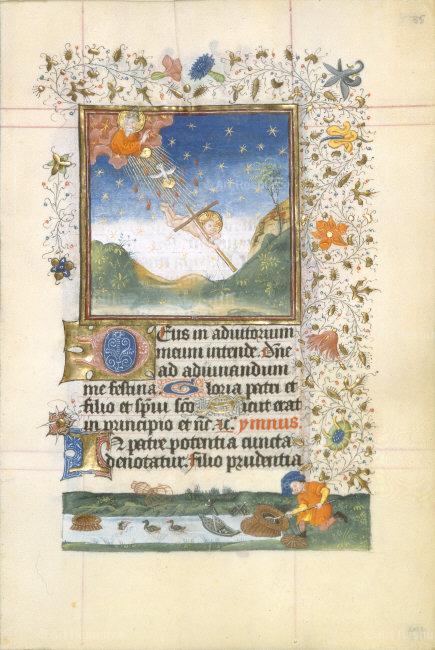 Deus in adiutorium
meum intende. Dñe
ad adiuuandum
me festina. Gloria patri et
filio et spũi scõ Sicut erat
in principio et ñc. ⁊c. ymnus.
In patre potentia cuncta
denotatur. Filio prudentia